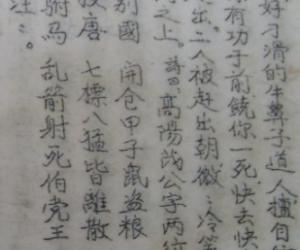 好刁滑的牛鼻子道人擅自
有功于前饒你一死快去快
出。二人被赶出朝微
之上。詩曰高陽茂公字两
别國 开仓甲子鼠盗粮
唐 七標八猛皆離散
駙马 乱箭射死伯党王